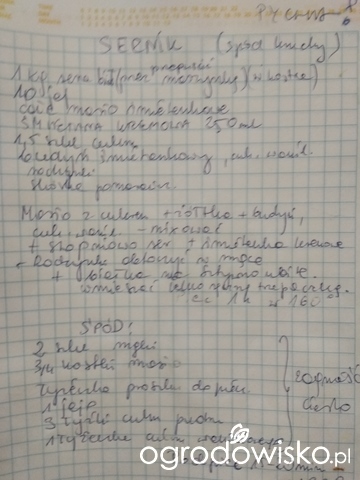 PYCHA
SERNIK (spód kruchy)
przepuścić
1 kg sera (przez maszynkę) (w kostce)
10 jaj
całe masło śmietankowe
ŚMIETANA KREMOWA 250 ml
1,5 szkl. cukru
budyń śmietankowy, cuk. wanil.
rodzynki
skórka pomarańcz.
Masło z cukrem + żółtka + budyń,
cuk. wanil. - mixować
+ stopniowo ser + śmietanka kremowa
- Rodzynki obtoczyć w mące
+ białka na sztywno ubite.
wmieszać
1h w 160°
SPÓD:
2 szkl mąki
3/4 kostki masła
łyżeczka proszku do piecz.
1 jajo
3 łyżki cukru pudru
1 łyżeczka cukru waniliowego
zagnieść
ciasto
ogrodowisko.pl